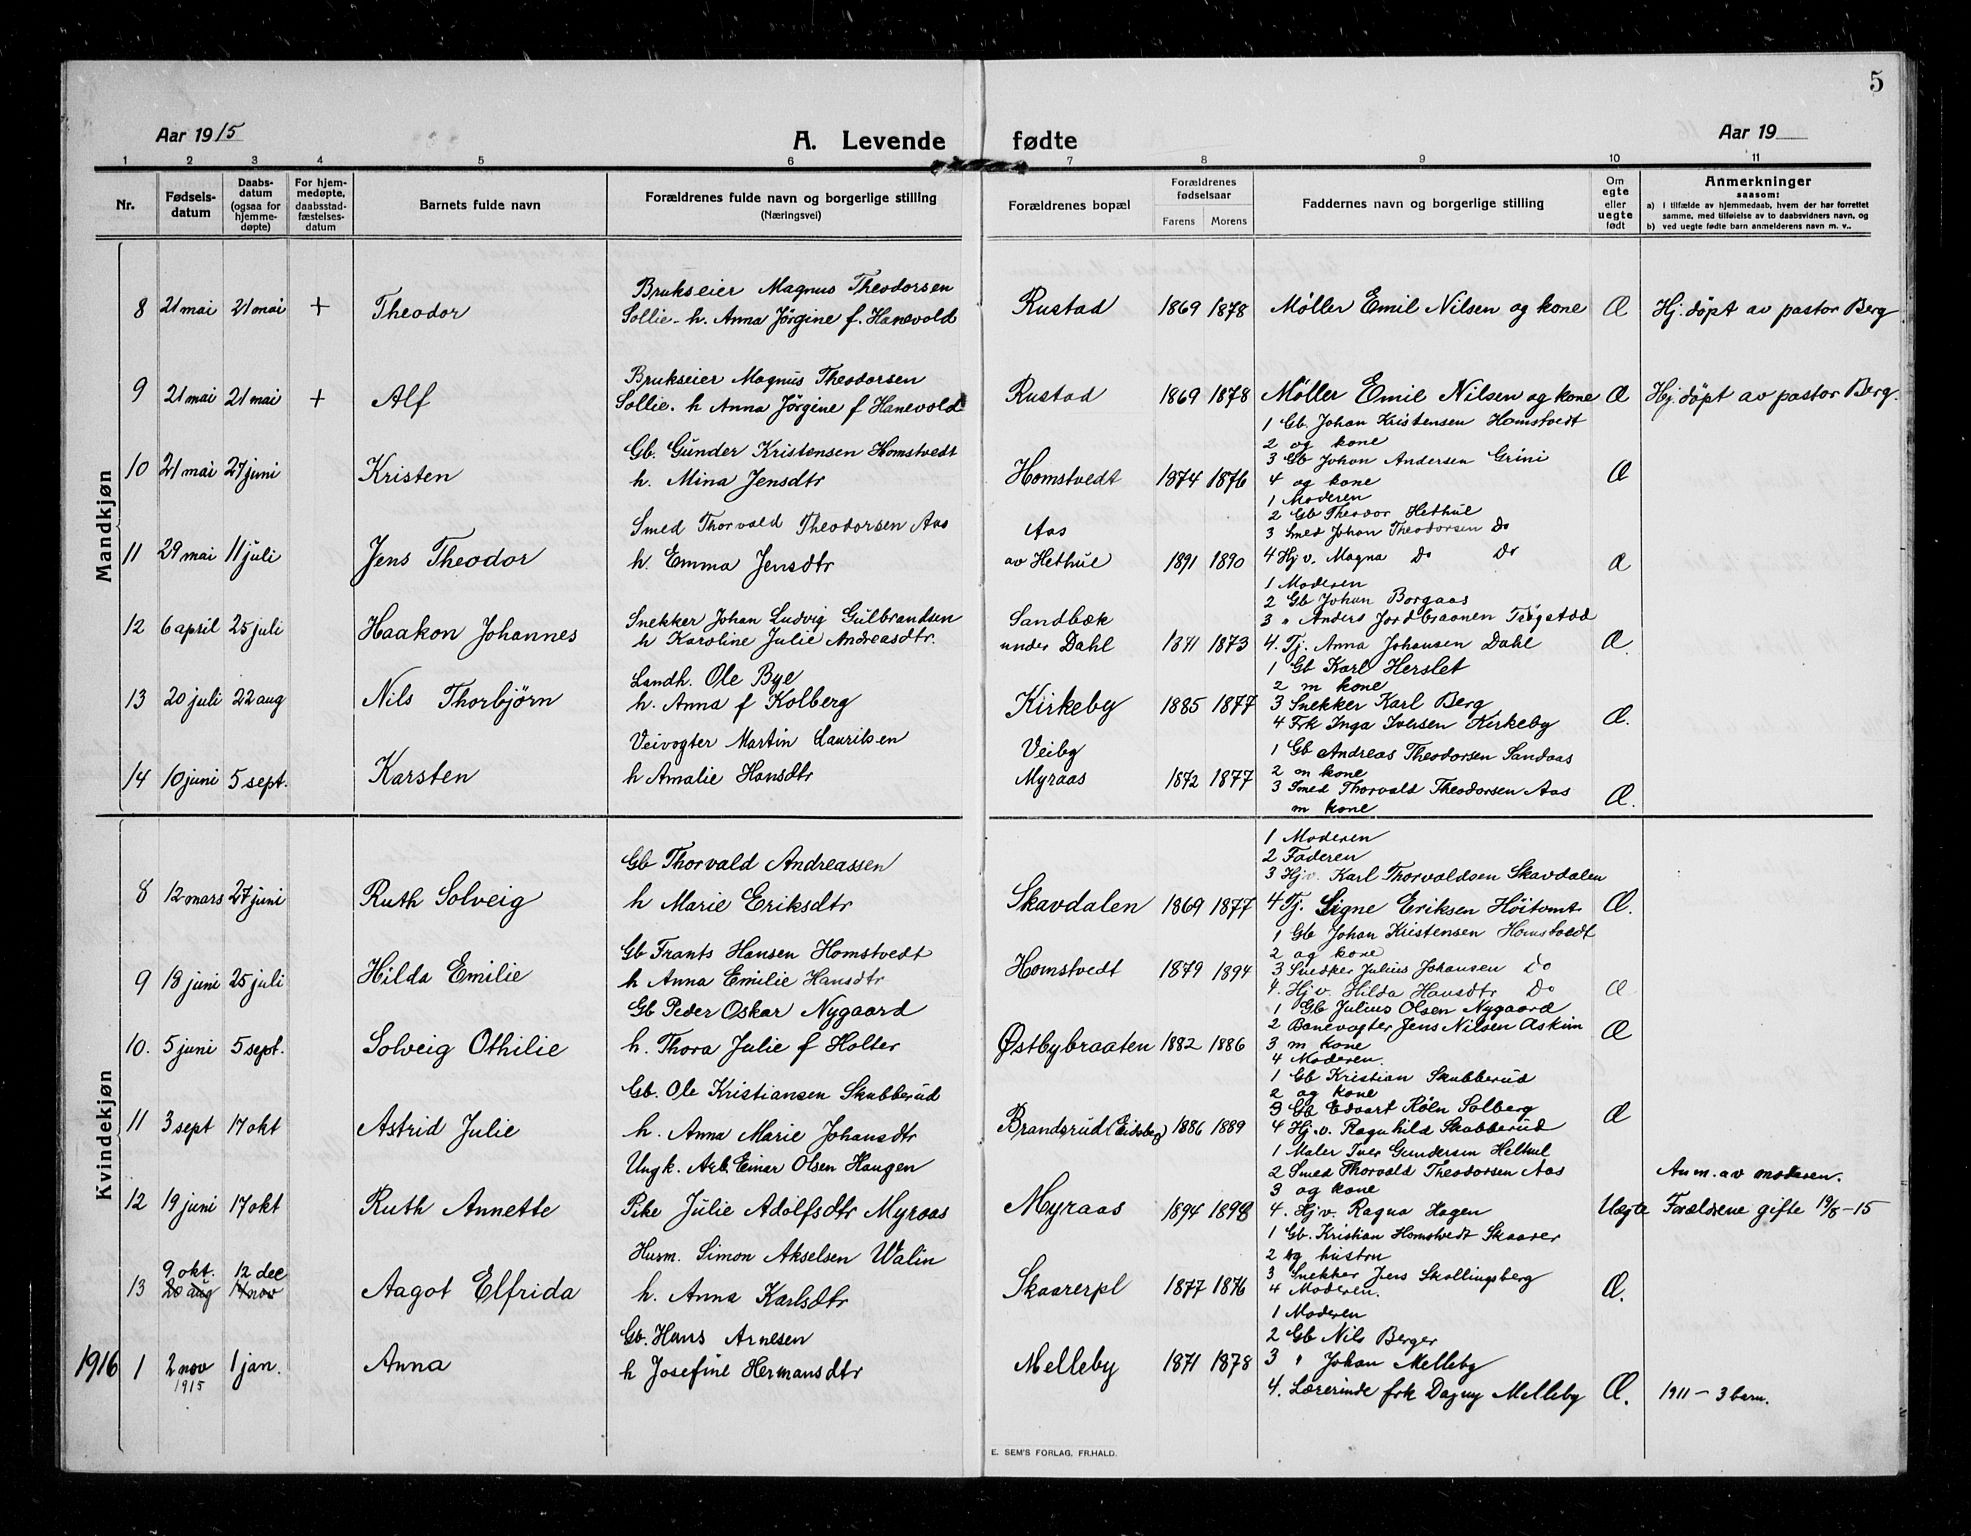 5
Aar 1915
A. Levende fødte
Aar 19
1 2 3 4 5 6 7 8 9 10 11
Nr.
Fødsels-
datum
Daabs-
datum
(ogsaa for
hjemme-
døpte)
For hjem-
medøpte,
daabsstad-
fæstelses-
datum
Barnets fulde navn
Forældrenes fulde navn og borgerlige stilling
(Næringsvei)
Forældrenes bopæl
Forældrenes
fødselsaar
Farens Morens
Faddernes navn og borgerlige stilling
Om
egte
eller
uegte
født
Anmerkninger
saasom:
a) I tilfælde av hjemmedaab, hvem der har forrettet
samme, med tilføielse av to daabsvidners navn, og
b) ved uegte fødte barn anmelderens navn m. v..
Mandkjøn
8 21 mai 21 mai + Theodor
Brukseier Magnus Theodorsen
Sollie - h. Anna Jørgine f. Hanevold
Rustad 1869 1878 Møller Emil Nilsen og kone Æ Hj. døpt av pastor Berg
9 21 mai 21 mai + Alf
Brukseier Magnus Theodorsen
Sollie. h Anna Jørgine f Hanevold
Rustad 1869 1878 Møller Emil Nilsen og kone Æ Hj. døpt av pastor Berg.
10 21 mai 27 juni Kristen
Gb. Gunder Kristensen Homstvedt
h. Mina Jensdtr
Homstvedt 1874 1876
1 Gb. Johan Kristensen Homstvedt
2 og kone
3 Gb Johan Andersen Grini
4 og kone
Æ
11 29 mai 11 juli Jens Theodor
Smed Thorvald Theodorsen Aas
h. Emma Jensdtr
Aas
av Hethul 1891 1890
1 Moderen
2 Gb Theodor Hethul
3 Smed Johan Theodorsen Do
4 Hj v. Magna Do Do
Æ
12 6 april 25 juli Haakon Johannes
Snekker Johan Ludvig Gulbrandsen
h Karoline Julie Andreasdtr.
Sandbæk
under Dahl 1871 1873
1 Moderen
2 Gb Johan Borgaas
3 " Anders Jordbraanen Trøgstad
4. Tj. Anna Johansen Dahl
Æ.
13 20 juli 22 aug Nils Thorbjørn
Landh. Ole Bye
h. Anna f Kolberg
Kirkeby 1885 1877
1 Gb Karl Herslet
2 m kone
3 Snekker Karl Berg
4 Frk Inga Iversen Kirkeby
Æ.
14 10 juni 5 sept. Karsten
Veivogter Martin Lauritsen
h Amalie Hansdtr
Veiby
Myraas 1872 1877
1 Gb Andreas Theodorsen Sandaas
2 m kone
3 Smed Thorvald Theodorsen Aas
m kone
Æ.
Kvindekjøn
8 12 mars 27 juni Ruth Solveig
Gb Thorvald Andreassen
h Marie Eriksdtr
Skavdalen 1869 1877
1 Moderen
2 Faderen
3 Hj.v. Karl Thorvaldsen Skavdalen
4 Tj. Signe Eriksen Høitomt
Æ.
9 18 juni 25 juli Hilda Emilie
Gb Frants Hansen Homstvedt
h Anna Emilie Hansdtr
Homstvedt 1879 1894
1 Gb Johan Kristensen Homstvedt
2 og kone
3 Snekker Julius Johansen Do
4. Hj v. Hilda Hansdtr Do
Æ
10. 5 juni 5 sept. Solveig Othilie
Gb Peder Oskar Nygaard
h. Thora Julie f Holter
Østbybraaten 1882 1886
1 Gb Julius Olsen Nygaard
2 Banevogter Jens Nilsen Askim
3 m kone
4 Moderen.
Æ
11 3 sept 17 okt Astrid Julie
Gb. Ole Kristiansen Skubberud
h. Anna Marie Johansdtr
Brandsrud (Eidsberg) 1886 1889
1 Gb Kristian Skubberud
2 og kone
3 Gb Edvart Køln Solberg
4 Hj. v. Ragnhild Skubberud
Æ
12 19 juni 17 okt Ruth Annette
Ungk. Arb. Einar Olsen Haugen
Pike Julie Adolfsdtr Myraas
Myraas 1894 1898
1 Maler Iver Gundersen Hethul
2 Smed Thorvald Theodorsen Aas
3 og kone
4. Hj v. Ragna Hagen
Uegte
Anm. av moderen.
Forældrene gifte 19/8-15
13 9 okt. 12 dec
20 aug 14 nov
Aagot Elfrida
Husm. Simon Akselsen Walin
h. Anna Karlsdtr
Skaarerpl 1877 1876
1 Gb. Kristian Homstvedt Skaarer
2 og hustru
3 Snekker Jens Skollingsberg
4 Moderen.
Æ.
1916 1 2 nov 1 jan. Anna
1915
Gb. Hans Arnesen
h Josefine Hermansdtr
Melleby 1871 1878
1 Moderen
2 Gb Nils Berger
3 " Johan Melleby
4. Lærerinde frk Dagny Melleby
Æ. 1911 - 3 barn.
E. SEM'S FORLAG, FR.HALD.